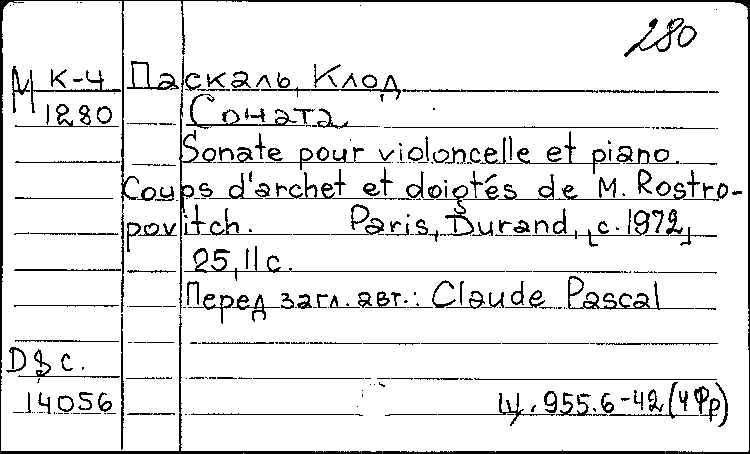 280
М К-4 Паскаль, Клод
1280 Соната
Sonate pour violoncelle et piano.
Coups d'archet et doigtés de M. Rostro-
povitch. Paris, Durand, [c. 1972]
25, 11 с.
Перед загл. авт.: Claude Pascal
с.
14056 Щ. 955.6-42 (4Фр)